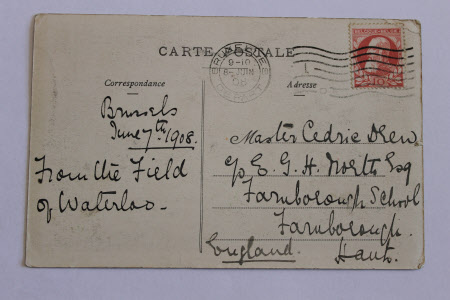 CARTE POSTALE
Correspondance
Adresse
BRUXELLES
9-10
BELGIQUE
Brussels
June 7th 1908.
From the Field
of Waterloo.
Master Cedric Drew.
c/o E. G. H. North Esq
Farnborough School
Farnborough.
Hants.
England.